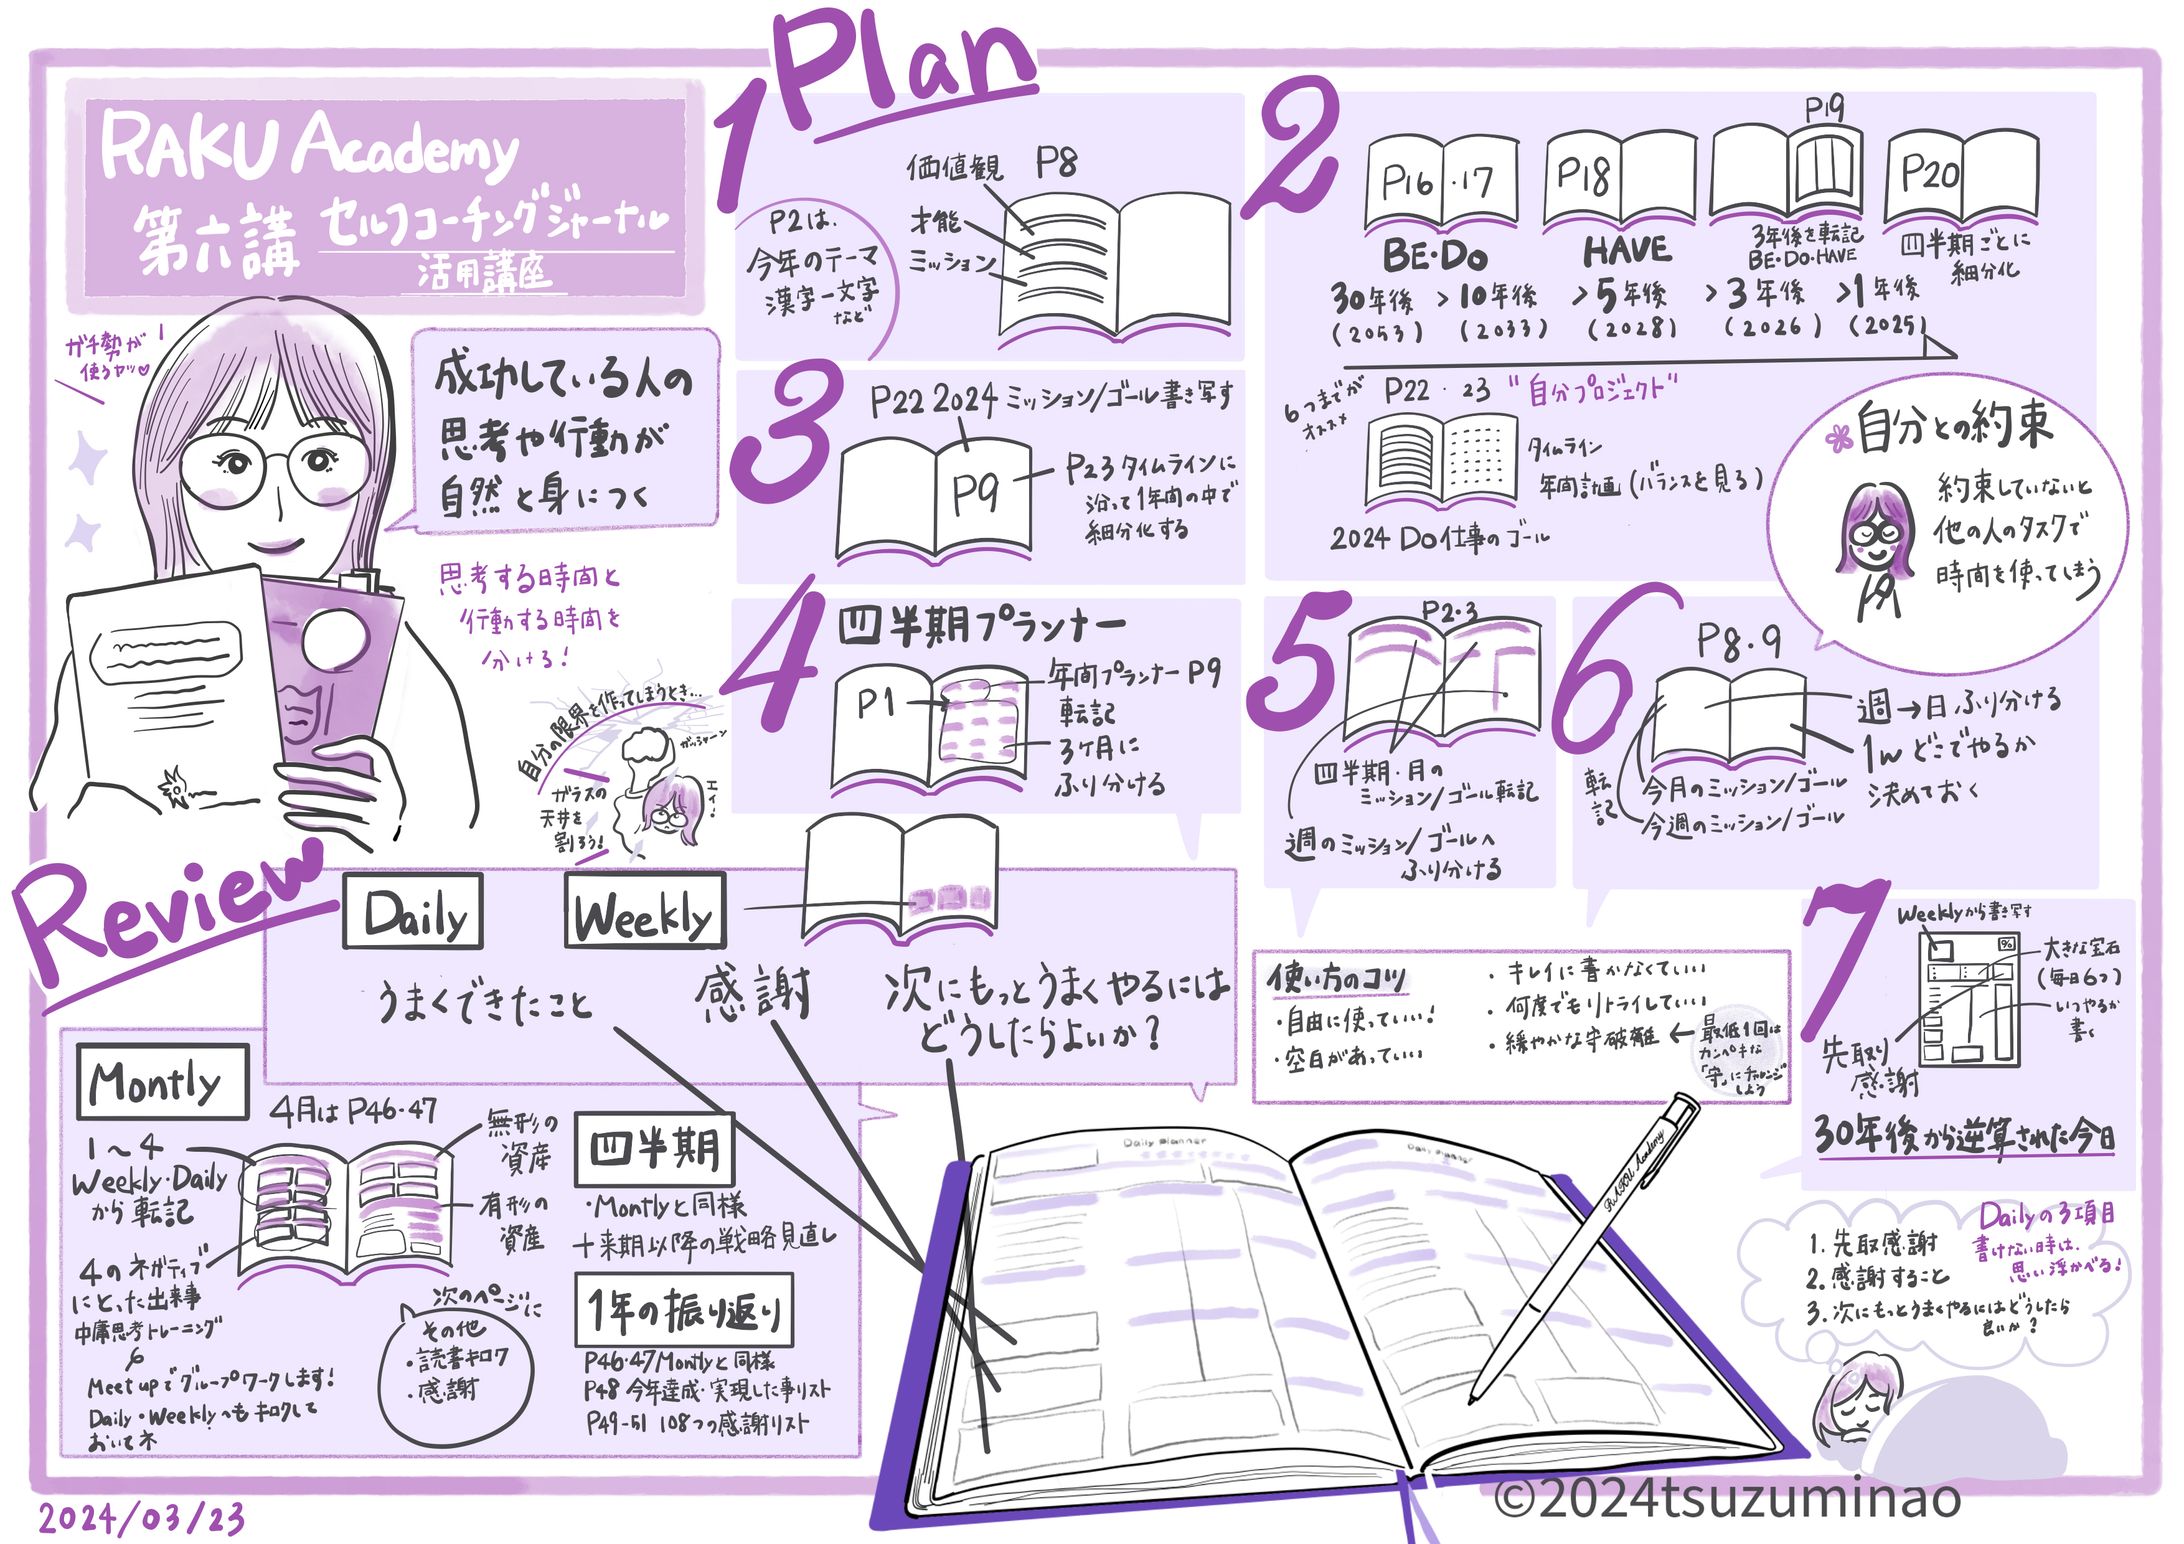 RAKU Academy
第六講 セルフコーチングジャーナル
活用講座
ガチ勢が
使うヤツ♡
成功している人の
思考や行動が
自然と身につく
思考する時間と
行動する時間を
分ける!
自分の限界を作ってしまうとき…
ガッシャーン
エイ!
ガラスの
天井を
割ろう!
Plan
1
P2は、
今年のテーマ
漢字一文字
など
価値観 P8
才能
ミッション
2
P16・17
P18
P19
P20
BE・Do
HAVE
3年後を転記
BE・DO・HAVE
四半期ごとに
細分化
30年後 > 10年後 > 5年後 > 3年後 > 1年後
(2053) (2033) (2028) (2026) (2025)
6つまでが
オススメ
P22・23 "自分プロジェクト"
タイムライン
年間計画(バランスを見る)
2024 Do 仕事のゴール
自分との約束
約束していないと
他の人のタスクで
時間を使ってしまう
3
P22 2024 ミッション/ゴール書き写す
P9
P23タイムラインに
沿って1年間の中で
細分化する
4
四半期プランナー
P1
年間プランナー P9
転記
3ヶ月に
ふり分ける
5
P2・3
四半期・月の
ミッション/ゴール転記
週のミッション/ゴールへ
ふり分ける
6
P8・9
週→日ふり分ける
1w どこでやるか
決めておく
転記
今月のミッション/ゴール
今週のミッション/ゴール
7
Weeklyから書き写す
%
大きな宝石
(毎日6つ)
いつやるか
書く
先取り
感謝
30年後から逆算された今日
使い方のコツ
・自由に使っていい!
・空白があっていい
・キレイに書かなくていい
・何度でもリトライしていい
・緩やかな守破離 ← 最低1回は
カンペキな
「守」にチャレンジ
しよう
Dailyの3項目
書けない時は、
思い浮かべる!
1. 先取感謝
2. 感謝すること
3. 次にもっとうまくやるにはどうしたら
良いか?
Review
Daily
Weekly
うまくできたこと
感謝
次にもっとうまくやるには
どうしたらよいか?
Montly
4月は P46・47
1〜4
Weekly・Daily
から転記
4のネガティブ
にとった出来事
中庸思考トレーニング
Meet upでグループワークします!
Daily・Weeklyへもキロクして
おいてネ
無形の
資産
有形の
資産
次のページに
その他
・読書キロク
・感謝
四半期
・Montlyと同様
+来期以降の戦略見直し
1年の振り返り
P46・47 Montlyと同様
P48 今年達成・実現した事リスト
P49-51 108つの感謝リスト
Daily planner
Daily planner
RAKU Academy
2024/03/23
©2024tsuzuminao